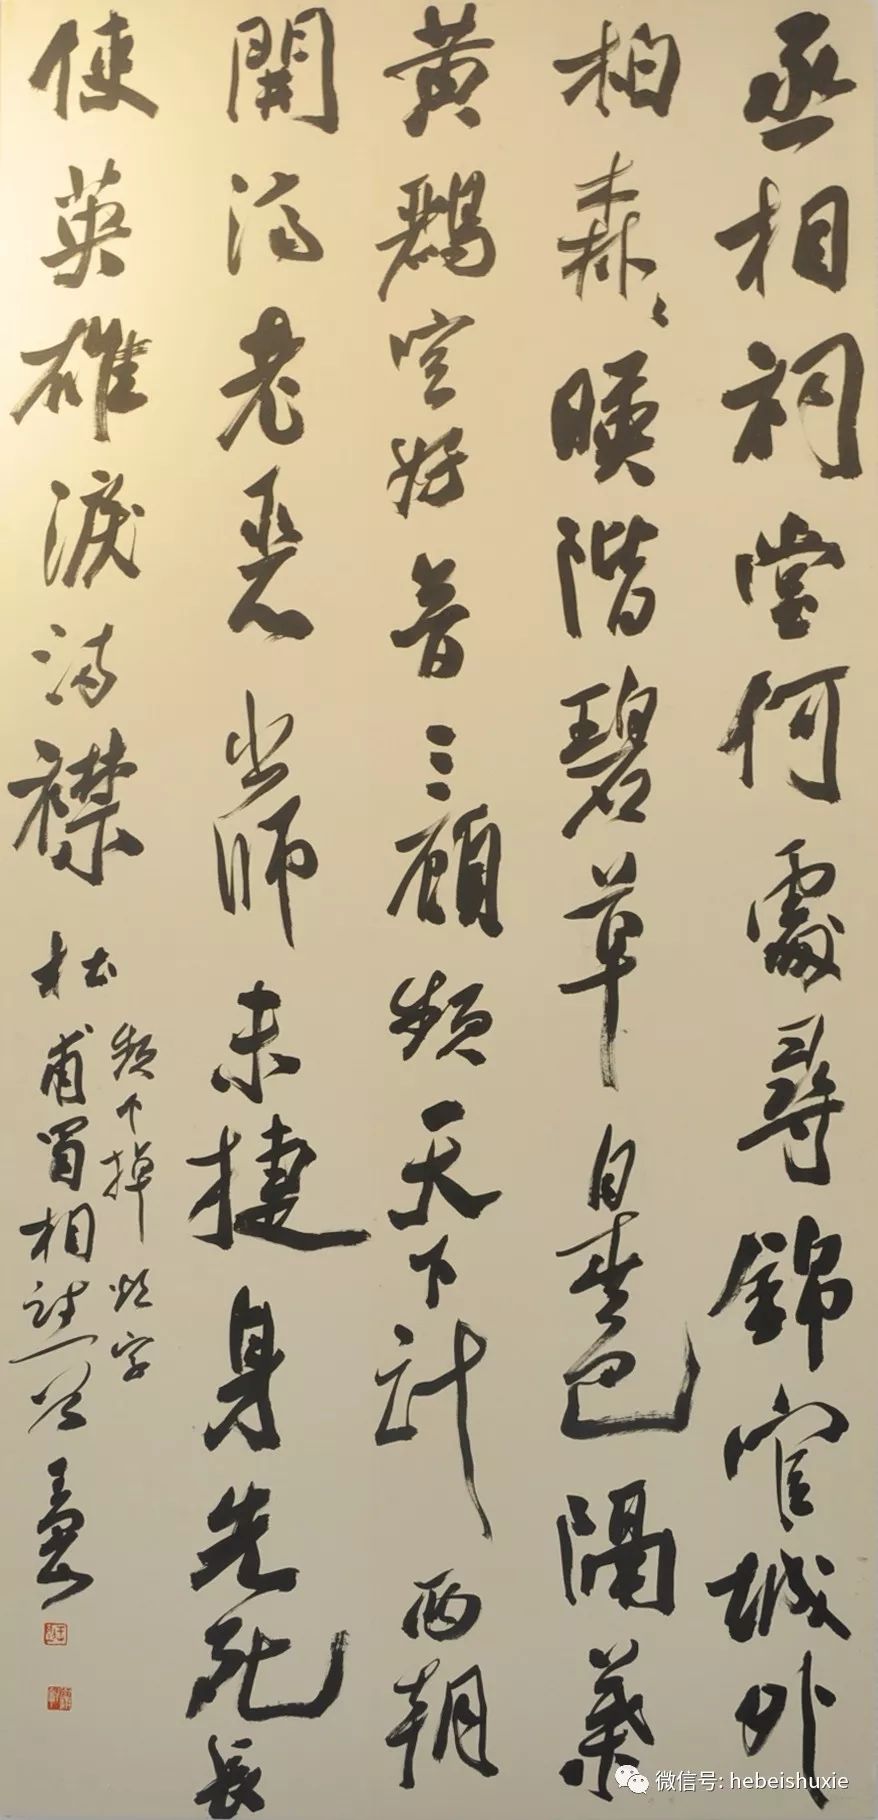 丞相祠堂何處尋錦官城外
柏森々暎階碧草自春色隔葉
黄鸝空好音三顧頻天下計兩朝
開濟老臣出師未捷身先死長
使英雄淚滿襟
頻下掉煩字
杜甫蜀相詩一首
微信号: hebeishuxie